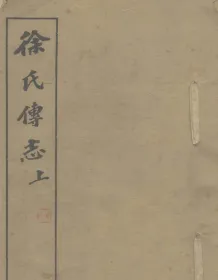 徐氏傳志上